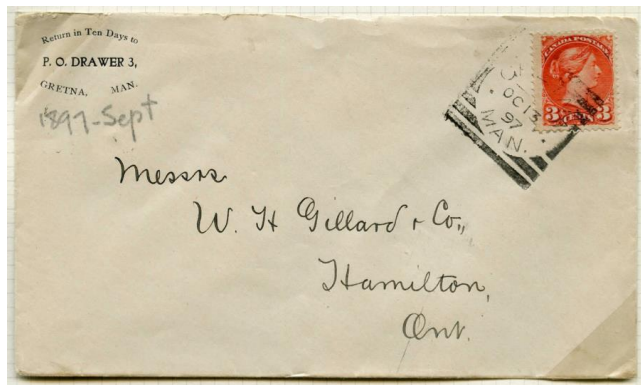 Return in Ten Days to
P. O. DRAWER 3,
GRETNA, MAN.
1897-Sept
CANADA POSTAGE
3 CENTS 3
OC 13
97
MAN.
Messrs.
W. H Gillard & Co.,
Hamilton,
Ont.